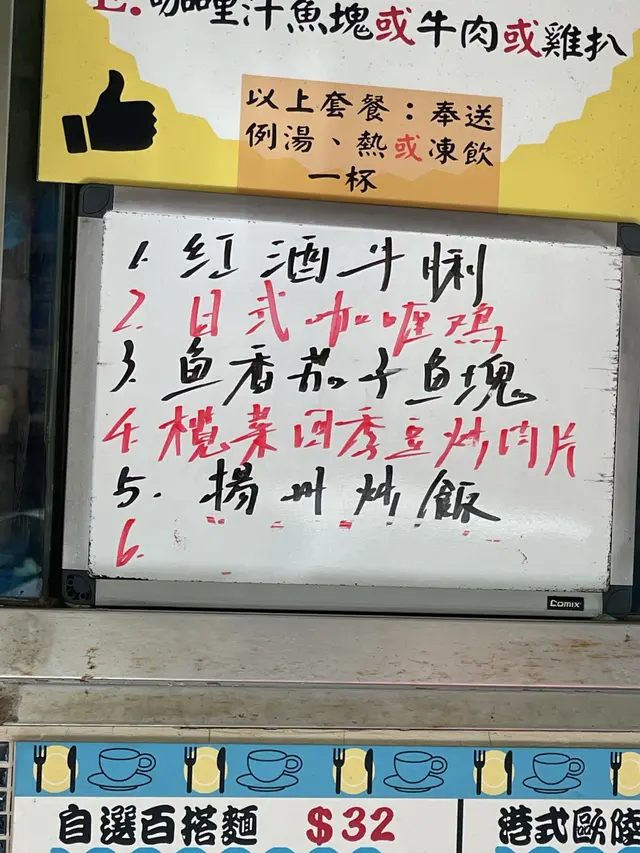 E. 咖喱汁魚塊或牛肉或雞扒
以上套餐：奉送
例湯、熱或凍飲
一杯
1. 紅酒牛脷
2. 日式咖喱鸡
3. 鱼香茄子鱼塊
4 欖菜四季豆炒肉片
5. 揚州炒飯
6.
COMIX
自選百搭麵 $32
港式歐陸